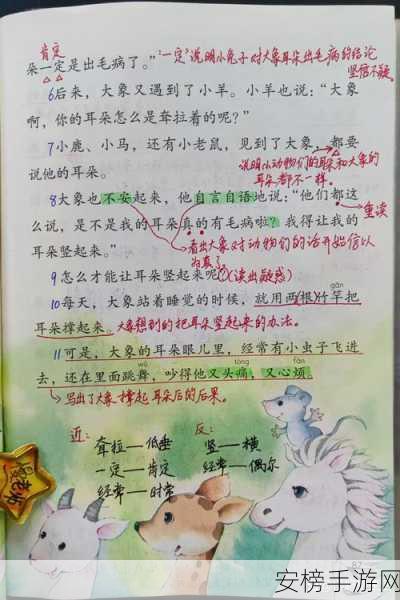 肯定
朵一定是出毛病了。" "一定"说明小兔子对大象耳朵出毛病的结论
坚信不疑。
6后来，大象又遇到了小羊。小羊也说："大象
啊，你的耳朵怎么是耷拉着的呢？"
7小鹿、小马，还有小老鼠，见到了大象，都要
说他的耳朵。
说明小动物们的耳朵和大象的
耳朵都不一样。
8大象也不安起来，他自言自语地说："他们都这
么说，是不是我的耳朵真的有毛病啦？我得让我的
重读
耳朵竖起来。"
看出大象对动物们的话开始信以
为真了。
9怎么才能让耳朵竖起来呢？(读出疑惑)
10每天，大象站着睡觉的时候，就用两根竹竿把
gān
耳朵撑起来。大象想到的把耳朵竖起来的办法。
11可是，大象的耳朵眼儿里，经常有小虫子飞进
wǔ tóng fán
去，还在里面跳舞，吵得他又头痛，又心烦。
写出了大象撑起耳朵后的后果。
近：
耷拉—低垂
一定—肯定
经常—时常
反：
竖—横
经常—偶尔
老师
87
安榜手游网